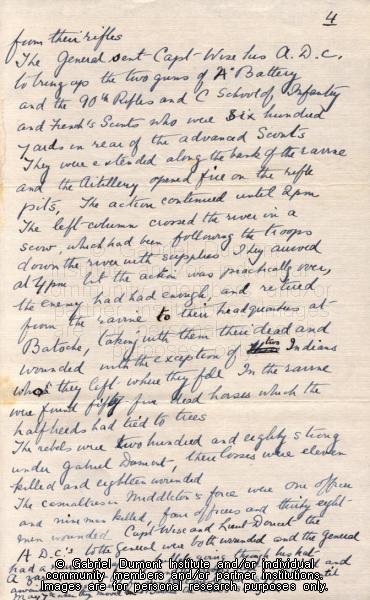 4
from their rifles
The General sent Capt. Wise his A.D.C.
to bring up the two guns of "A" Battery
and the 90th Rifles and C School of Infantry
and French's Scouts who were six hundred
yards in rear of the advanced Scouts
They were extended along the bank of the ravine
and the Artillery opened fire on the rifle
pits, The action continued until 2 pm
The left column crossed the river in a
scow, which had been following the troops
down the river with supplies. They arrived
at 4 pm but the action was practically over,
the enemy had had enough, and retired
from the ravine to their headquarters at
Batoche, taking with them their dead and
wounded with the exception of two Indians
whom they left where they fell In the ravine
were found fifty-five dead horses which the
halfbreeds had tied to trees
The rebels were two hundred and eighty strong
under Gabriel Dumont, their losses were eleven
killed and eighteen wounded
The casualties in Middleton's force were one officer
and nine men killed, four officers and thirty eight
men wounded. Capt Wise and Lieut Doucet the
A D.C's to the General were both wounded and the General
had a going through his hat
A and
until
May
© Gabriel Dumont Institute and/or individual
community members and/or partner institutions.
Images are for personal research purposes only.